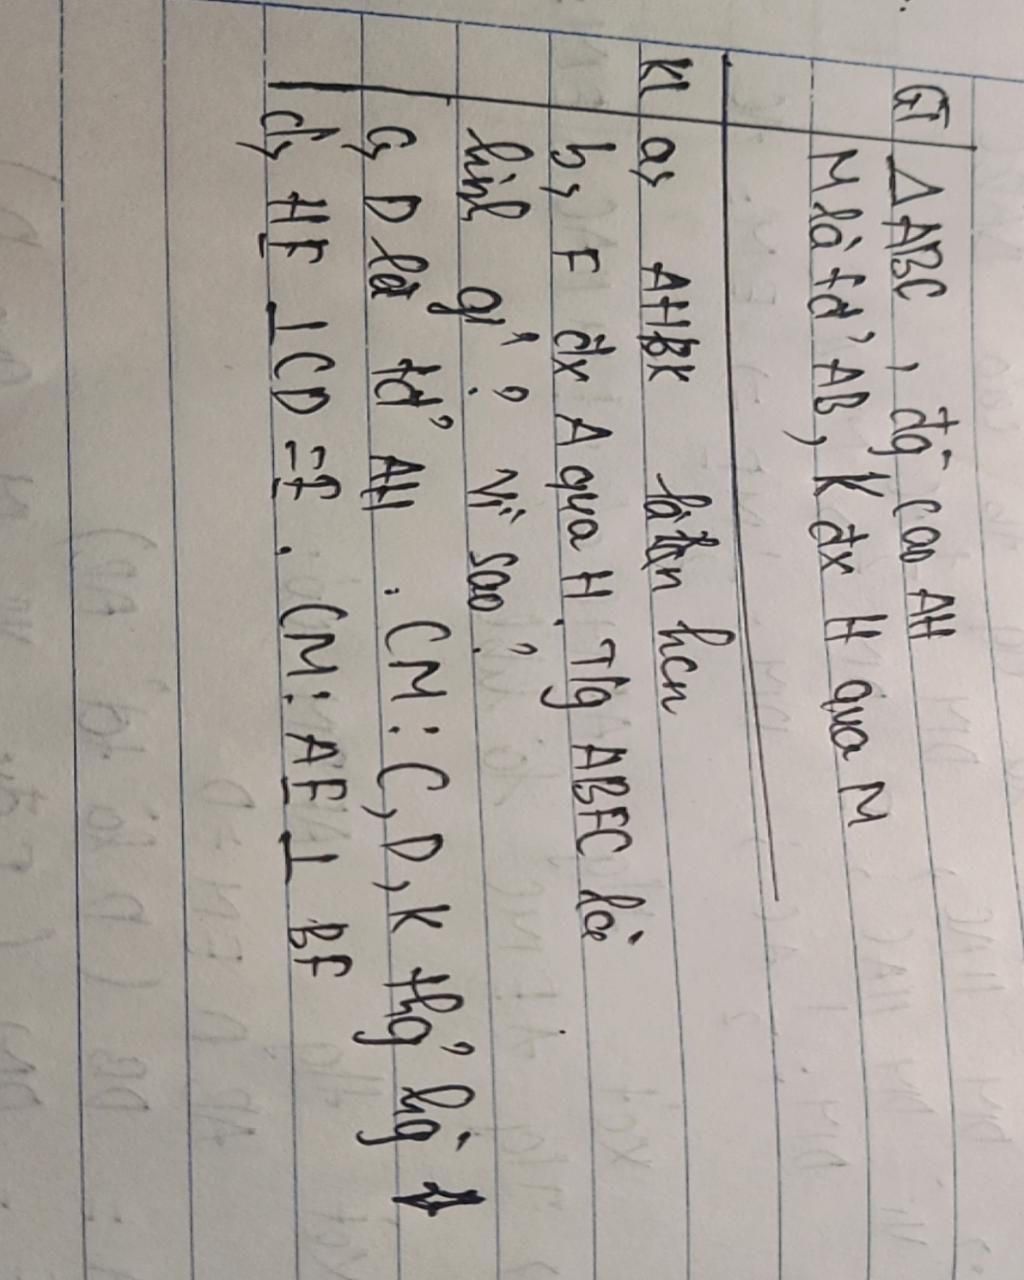 GT ΔABC, đg- cao AH
M là tđ' AB, K đx H qua M
Kl a, AHBK là hcn
b, F đx A qua H. T/g ABFC là
hình gì? vì sao?
c, D là tđ' AH. CM: C, D, K thg' hg`
d, HE ⊥ CD = E. CM: AE ⊥ BF